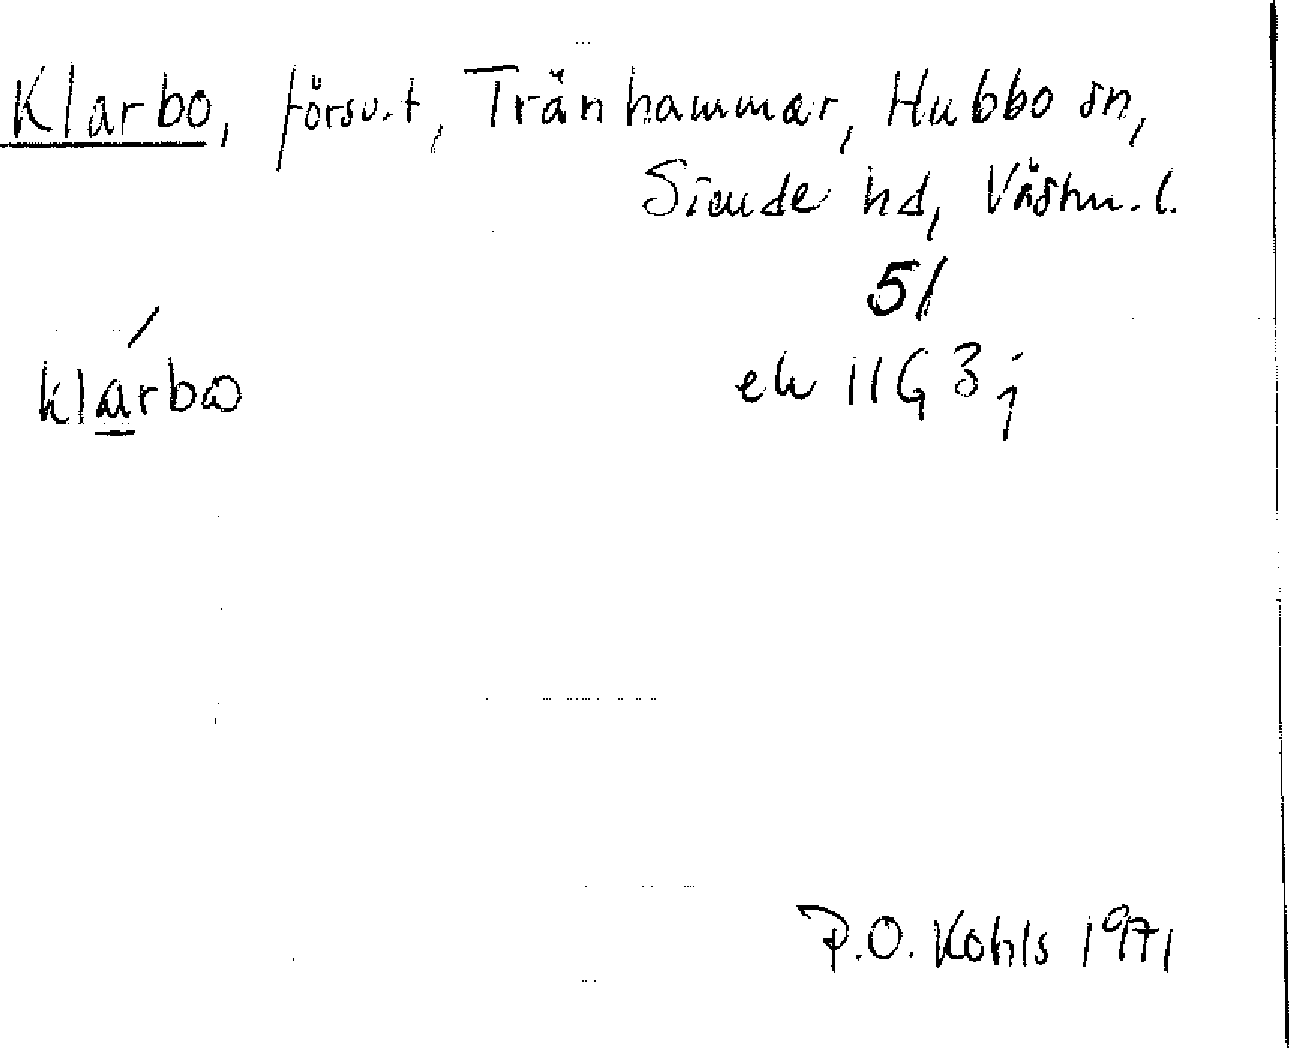 Klarbo, försv.t, Tränhammar, Hubbo sn,
Siende hd, Västm.l.
51
klarbo
ek 11G 3j
P.O. Kohls 1971